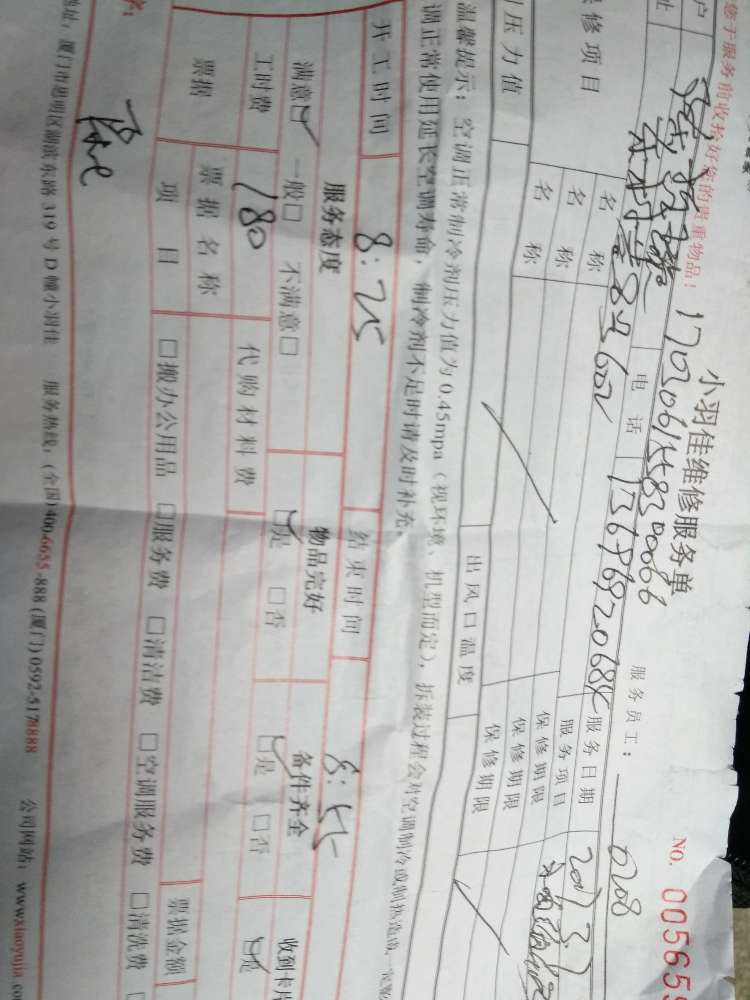 小羽佳维修服务单
NO. 005655
您于服务前收拾好您的贵重物品!
17020615830066
服务员工: 0208
户
址
8号602
电话
服务日期 2017.3.7
保修项目
名称
服务项目
名称
保修期限
名称
保修期限
保修期限
压力值
出风口温度
温馨提示:空调正常制冷剂压力值为0.45mpa(视环境、机型而定),拆装过程会对空调制冷或制热造成一定影
调正常使用延长空调寿命,制冷剂不足时请及时补充。
开工时间 8:25 结束时间 8:55
服务态度 物品完好 备件齐全 收到卡片
满意☑ 一般□ 不满意□ ☑是 □否 ☑是 □否 ☑是
工时费 180 代购材料费
票据 票据名称 票据金额
项目 □搬办公用品 □服务费 □清洁费 □空调服务费 □清洗费 □
地址:厦门市思明区湖滨东路319号D幢小羽佳 服务热线:(全国)400-6655-888 (厦门)0592-5178888 公司网站:www.xiaoyujia.com